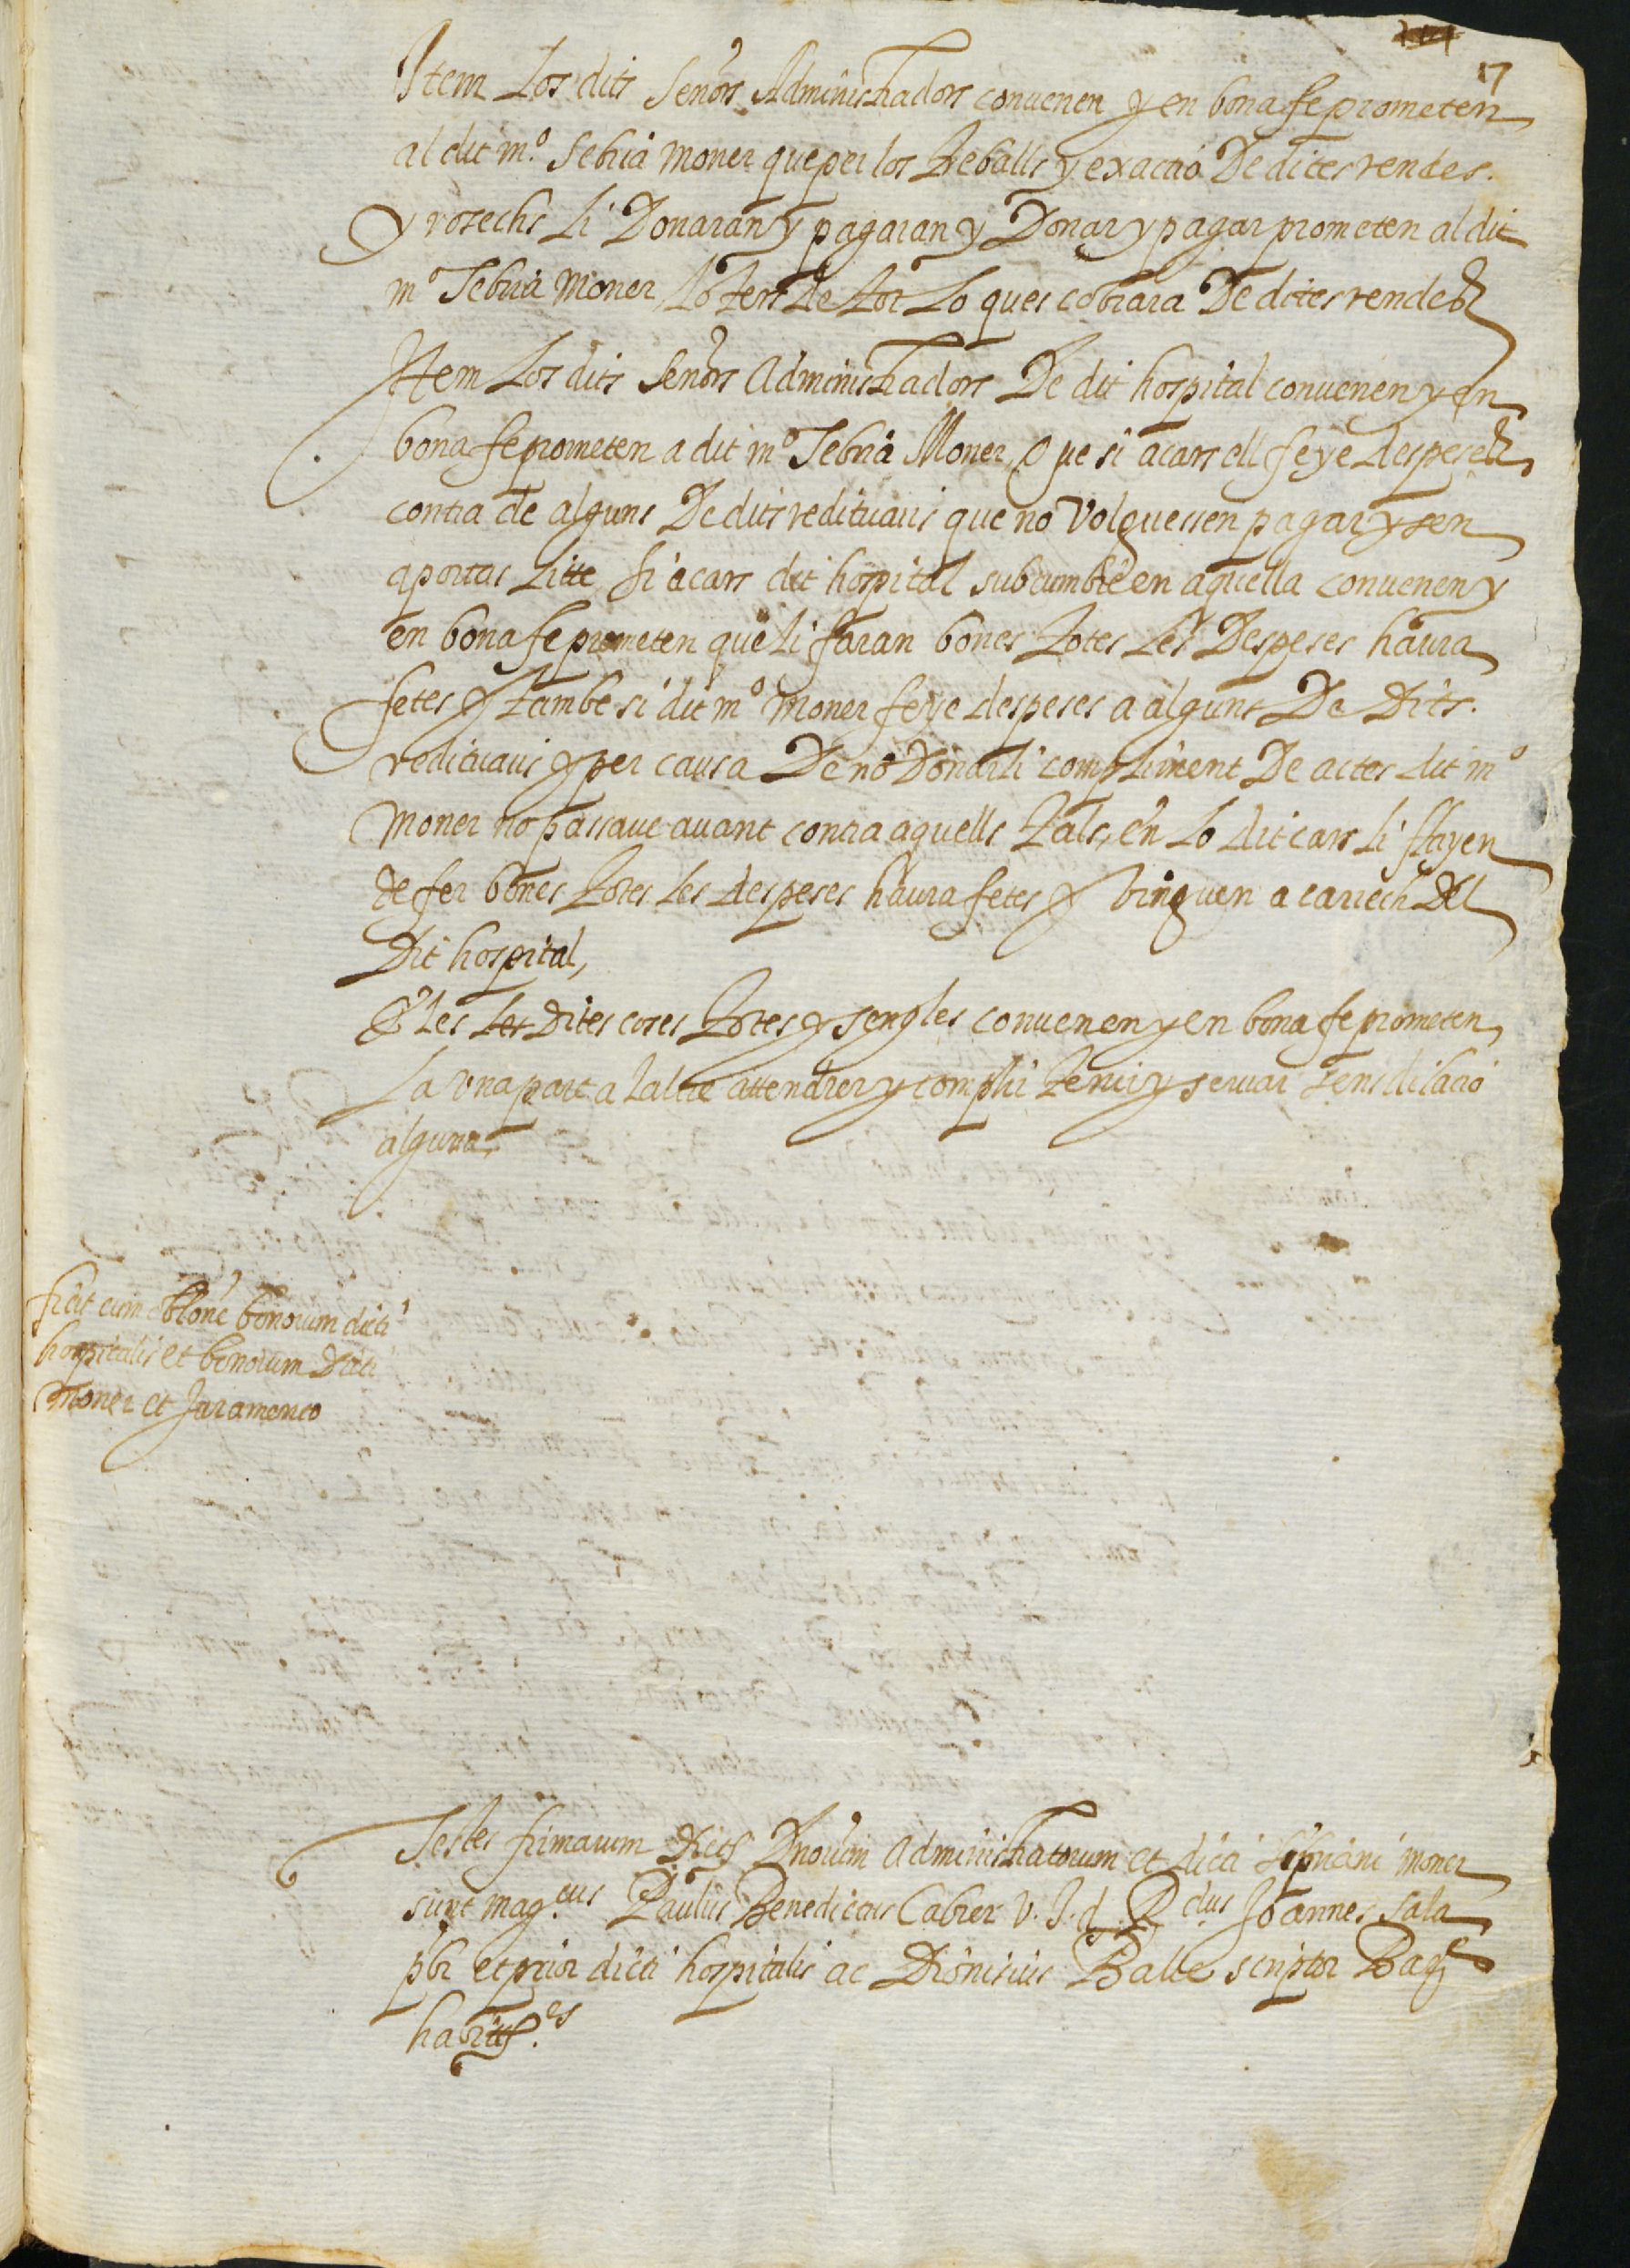 17
Item Los dits Señors Administradors convenen y en bona fe prometen
al dit m.º Sebria moner que per los treballs y exactio De dites rendes.
y rosechs li Donaran y pagaran y Donar y pagar prometen al dit
mº Sebria moner lo ters de tot lo ques cobrara De dites rendes
Item Los dits Señors Administradors De dit hospital convenen y en
bona fe prometen a dit mº Sebria Moner, Que si a cars ell feye despeses
contra de alguns De dits redituaris que no volguessen pagar y sen
aportas litte si a cars dit hospital subcumbie en aquella convenen y
en bona fe prometen que li faran bones totes les Despeses haura
fetes y tambe si dit mº moner feye despeses a alguns De Dits.
redituaris y per causa De no Donarli compliment De actes dit mº
Moner no passave avant contra aquells tals, en lo dit cars li hayen
de fer bones totes les despeses haura fetes y vinguen a carrech Del
Dit hospital,
E les les Dites coses totes y sengles convenen y en bona fe prometen
La una part a laltre attendrer y complir tenir y servar sens dilacio
alguna,
fiat cum oblone bonorum dicti
hospitalis et bonorum Dicti
Moner et Juramento
Testes firmarum Dict Dnorum Administratorum et dicti Sipriani moner
sunt mag.cus Paulus Benedictus Cabrer V. J. d. Rdus Joannes sala
pbr et prior dicti hospitalis ac Dionisius Balle scriptor Barᵉ
habitt.es